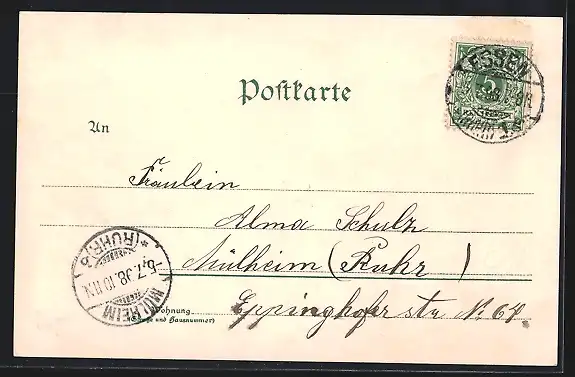 ESSEN
5
Postkarte
An
Fräulein
Alma Schulz
Mülheim (Ruhr)
Eppinghofer str No 67
Wohnung
(Straße und Hausnummer)
MÜLHEIM
*(RUHR)
5.7.98.10-11N.